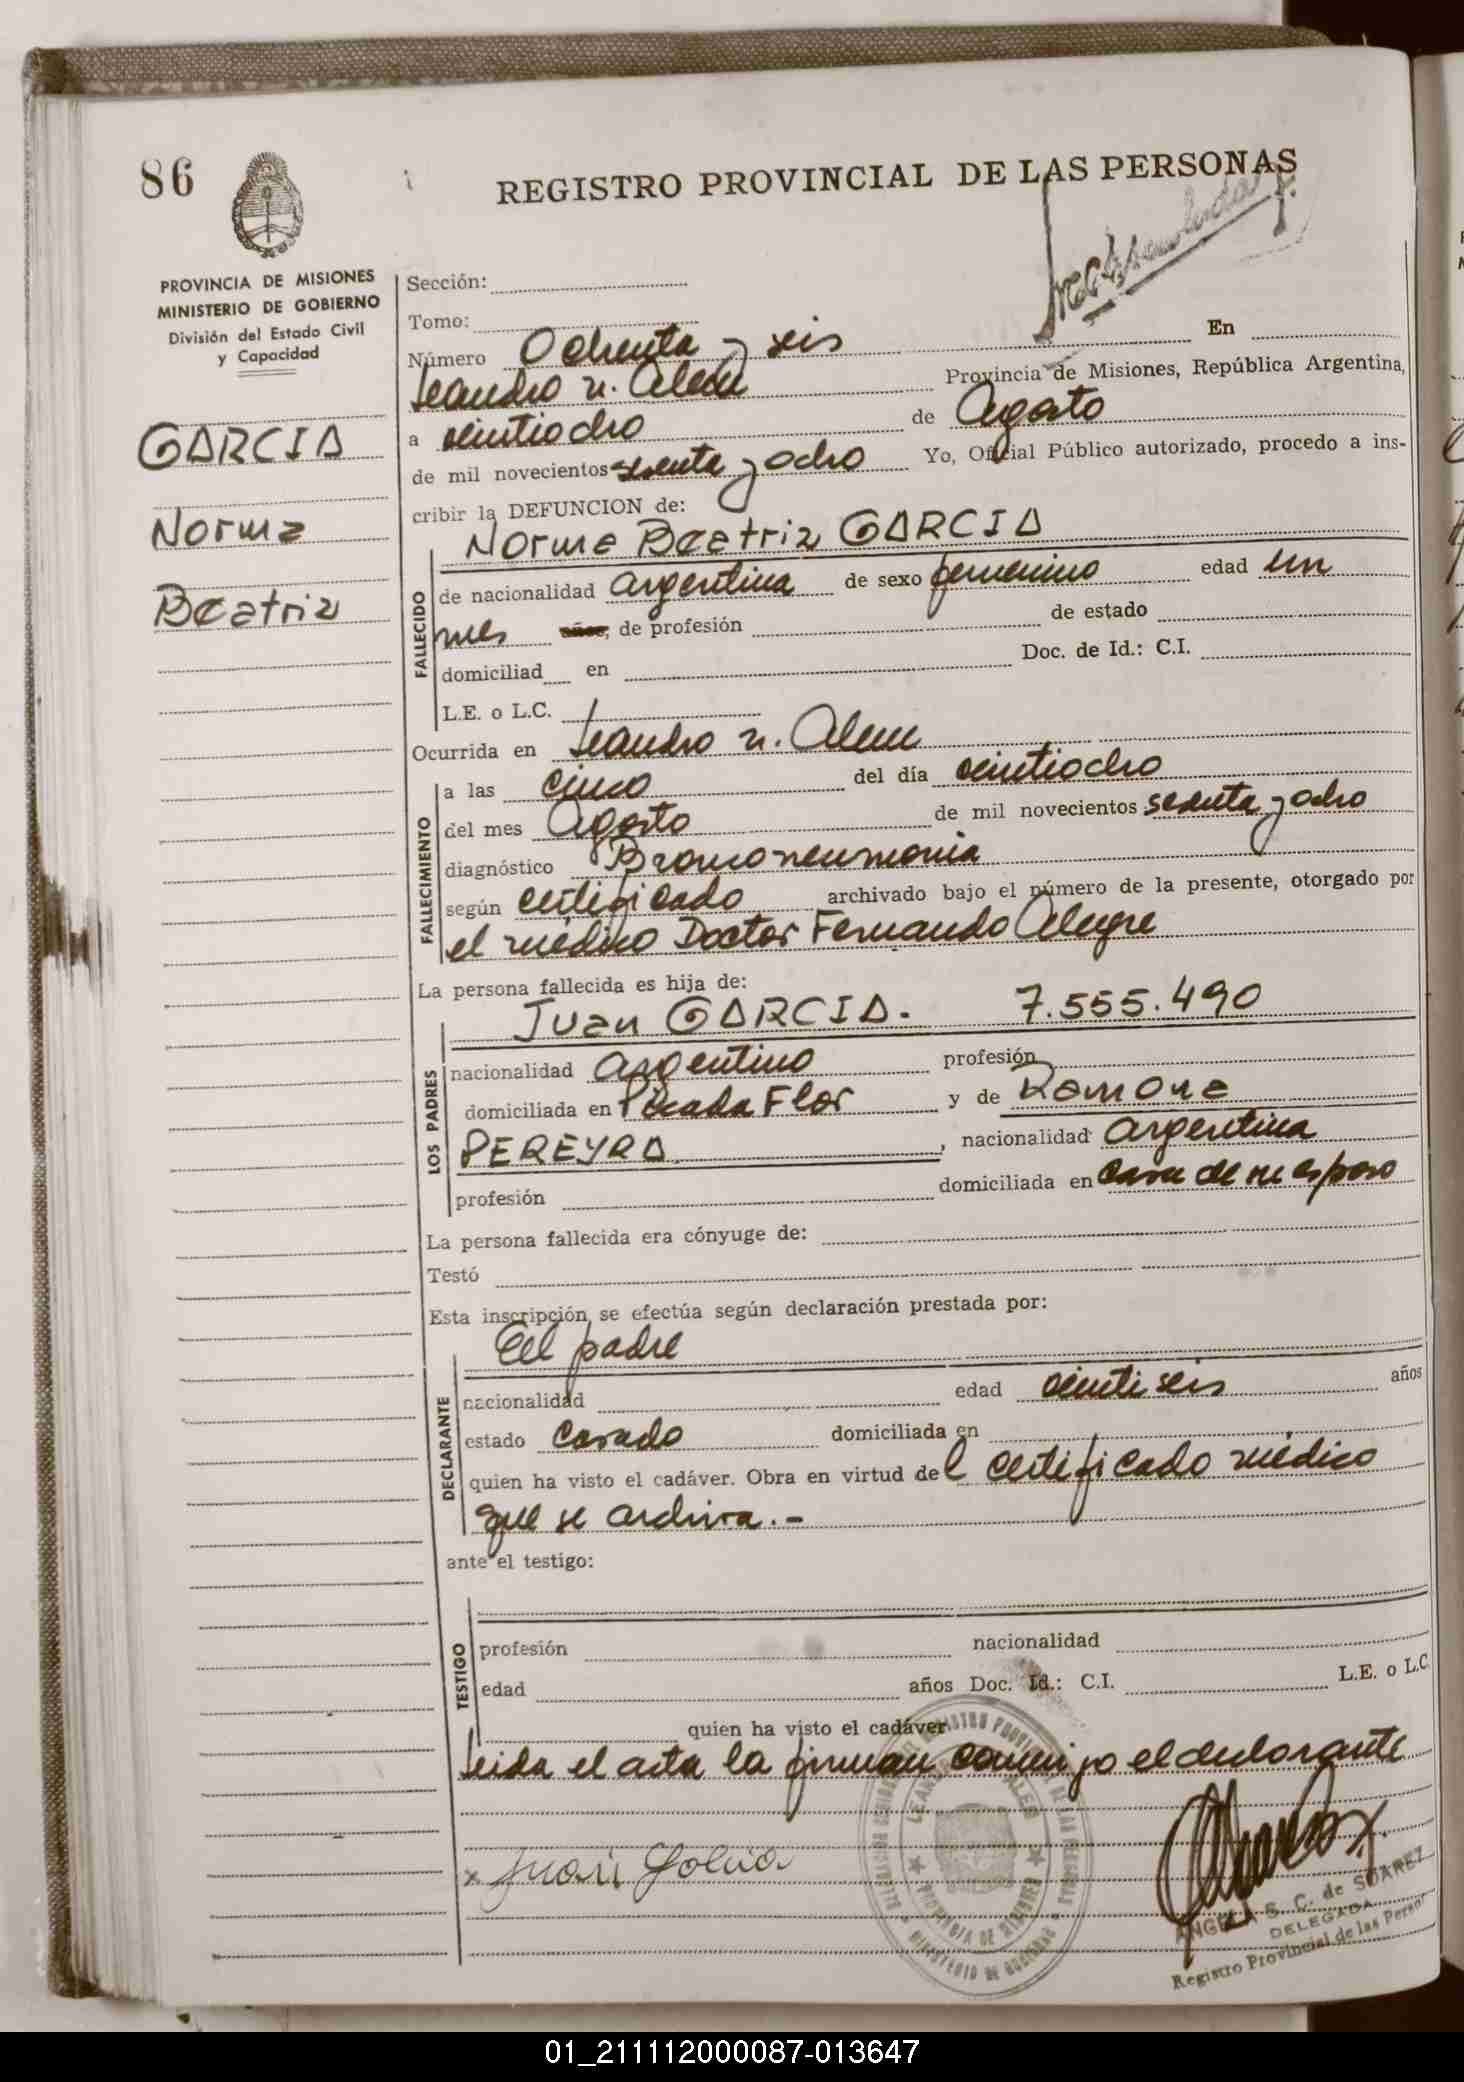 86
REGISTRO PROVINCIAL DE LAS PERSONAS
PROVINCIA DE MISIONES
MINISTERIO DE GOBIERNO
División del Estado Civil
y Capacidad
GARCIA
Norma
Beatriz
Sección:
Tomo:
Número Ochenta y seis En
Leandro N. Alem Provincia de Misiones, República Argentina,
a veintiocho de Agosto
de mil novecientos sesenta y ocho Yo, Oficial Público autorizado, procedo a ins-
cribir la DEFUNCION de:
Norma Beatriz GARCIA
FALLECIDO
de nacionalidad argentina de sexo femenino edad un
mes años, de profesión de estado
domiciliad en Doc. de Id.: C.I.
L.E. o L.C.
Ocurrida en Leandro N. Alem
FALLECIMIENTO
a las cinco del día veintiocho
del mes Agosto de mil novecientos sesenta y ocho
diagnóstico Bronconeumonia
según certificado archivado bajo el número de la presente, otorgado por
el médico Doctor Fernando Alegre
La persona fallecida es hija de:
Juan GARCIA. 7.555.490
LOS PADRES
nacionalidad argentino profesión
domiciliada en Picada Flor y de Ramona
PEREYRA, nacionalidad argentina
profesión domiciliada en casa de su esposo
La persona fallecida era cónyuge de:
Testó
Esta inscripción se efectúa según declaración prestada por:
El padre
DECLARANTE
nacionalidad edad veintiseis años
estado casado domiciliada en
quien ha visto el cadáver. Obra en virtud del certificado médico
que se archiva.-
ante el testigo:
TESTIGO
profesión nacionalidad
edad años Doc. Id.: C.I. L.E. o L.C
quien ha visto el cadáver
Leida el acta la firman conmigo el declarante
x Juan
ANGELA S. C. de SUAREZ
DELEGADA
Registro Provincial de las Person
PROVINCIA DE MISIONES
MINISTERIO DE GOBIERNO
01_211112000087-013647